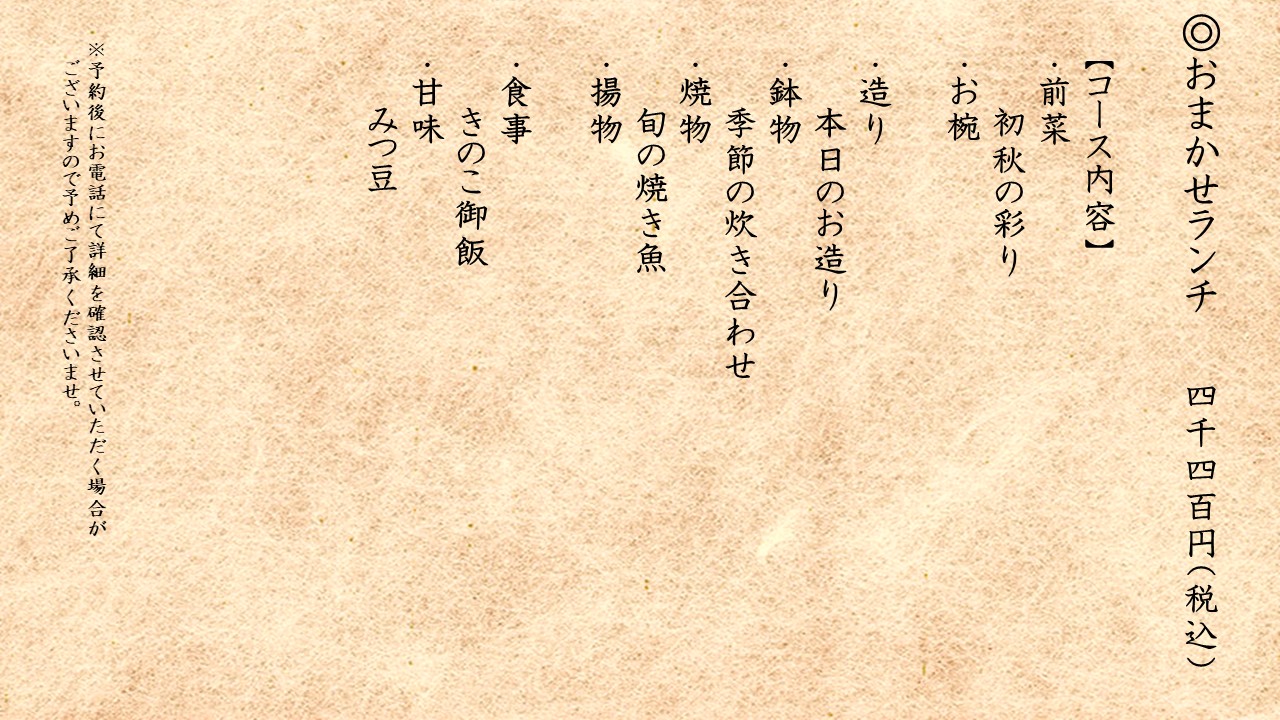 ◎おまかせランチ　四千四百円（税込）
【コース内容】
・前菜
初秋の彩り
・お椀
・造り
本日のお造り
・鉢物
季節の炊き合わせ
・焼物
旬の焼き魚
・揚物
・食事
きのこ御飯
・甘味
みつ豆
※予約後にお電話にて詳細を確認させていただく場合が
ございますので予めご了承くださいませ。